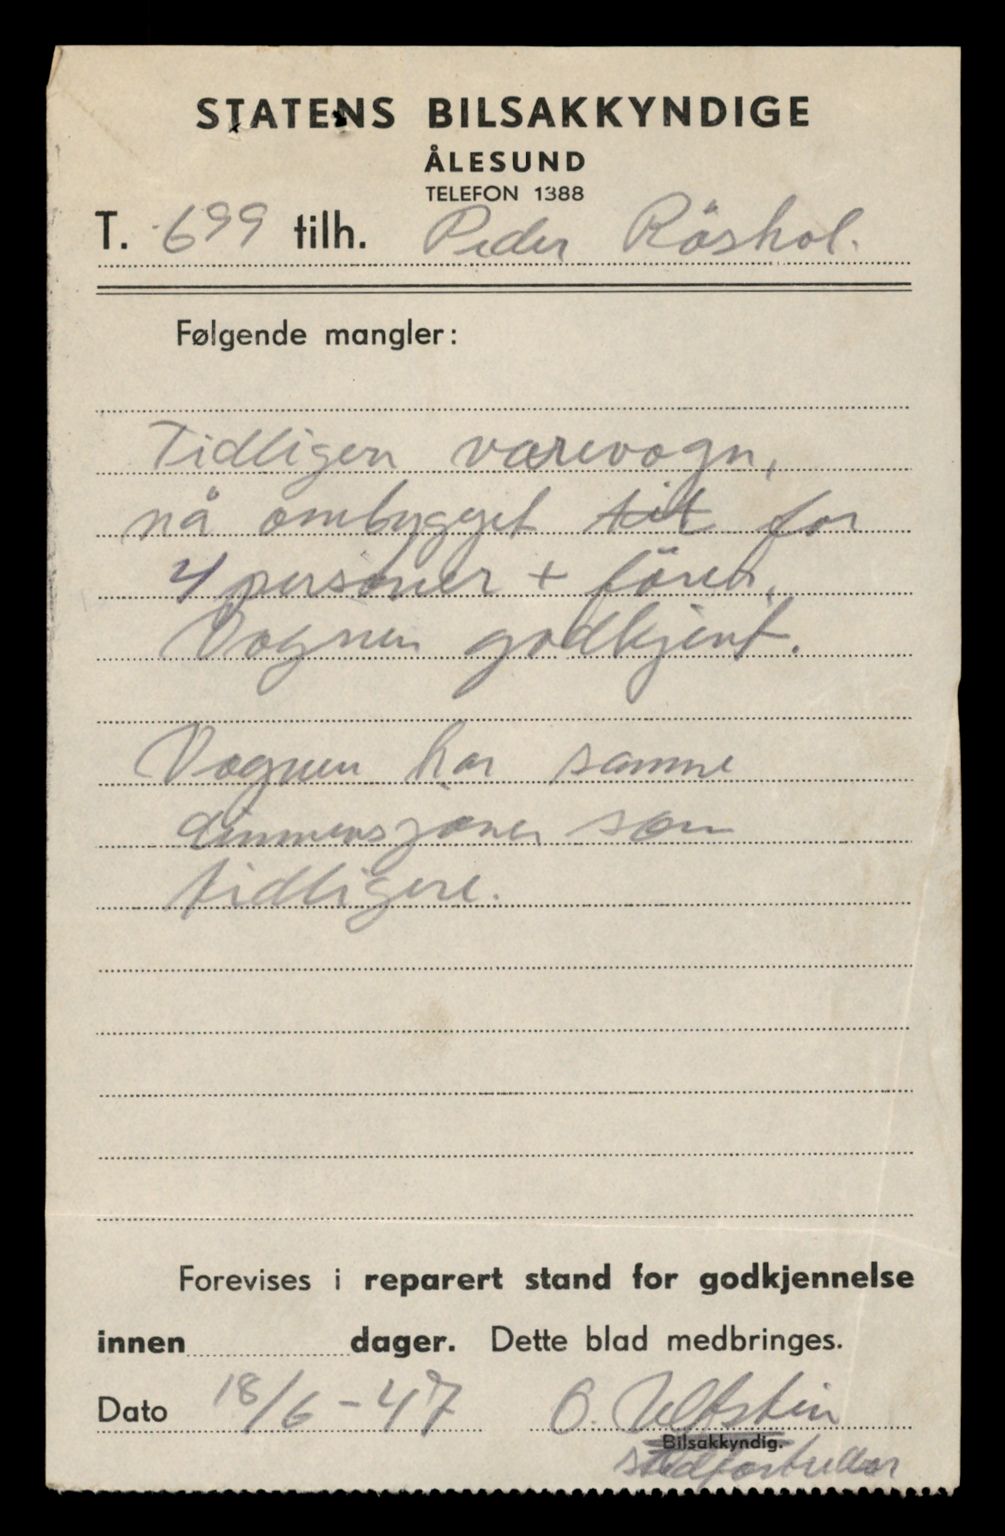 STATENS BILSAKKYNDIGE
ÅLESUND
TELEFON 1388
T. 699 tilh. Peder Röshol.
Følgende mangler:
Tidligere varevogn,
nå ombygget til for
4 personer + fører.
Vognen godkjent.
Vognen har samme
dimmensjoner som
tidligere.
Forevises i reparert stand for godkjennelse
innen dager. Dette blad medbringes.
Dato 18/6-47 O.
Bilsakkyndig.
stedfortreder